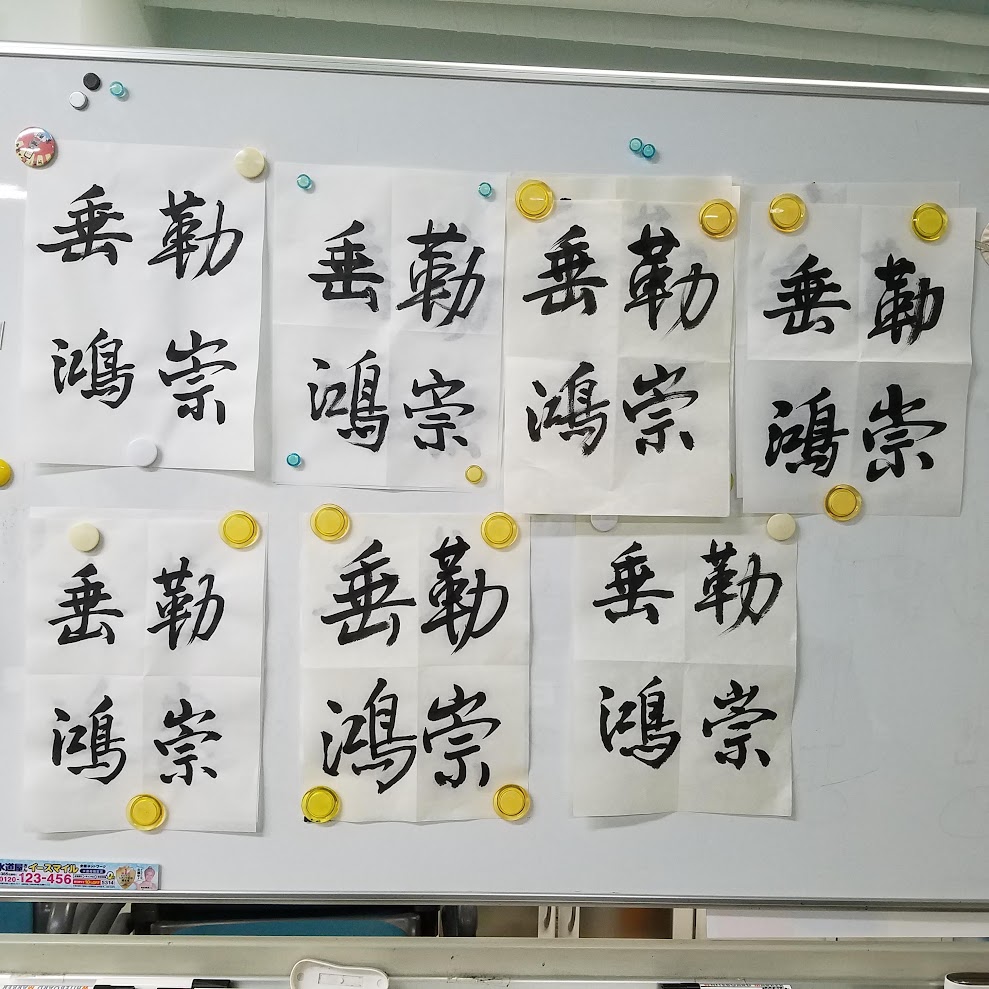 勒崇
垂鴻
勒崇
垂鴻
勒崇
垂鴻
勒崇
垂鴻
勒崇
垂鴻
勒崇
垂鴻
勒崇
垂鴻
水道屋さん イースマイル
0120-123-456